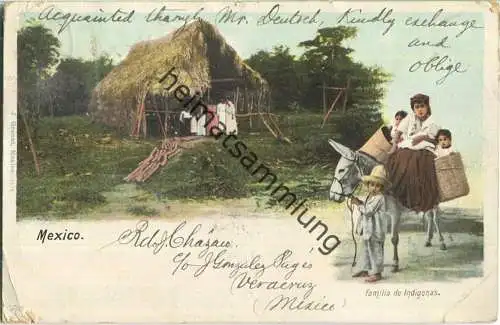 Acquainted through Mr. Deutsch, Kindly exchange
and
oblige
heimatsammlung.de
Mexico.
Familia de Indigenas.
c/o J González Pagés
Veracruz
(Mexico)